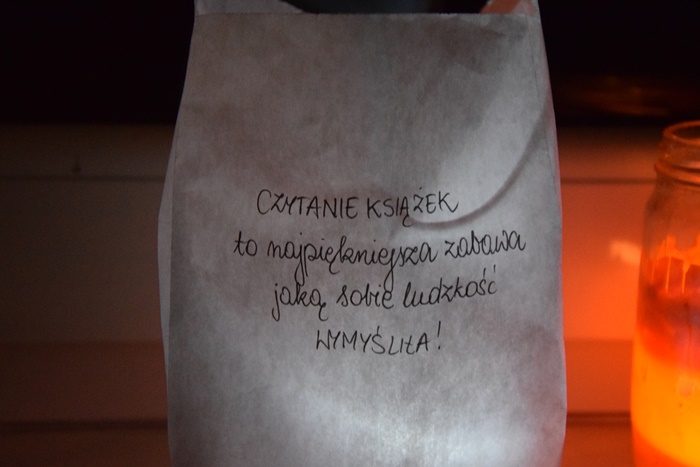 CZYTANIE KSIĄŻEK
to najpiękniejsza zabawa
jaką sobie ludzkość
WYMYŚLIŁA!